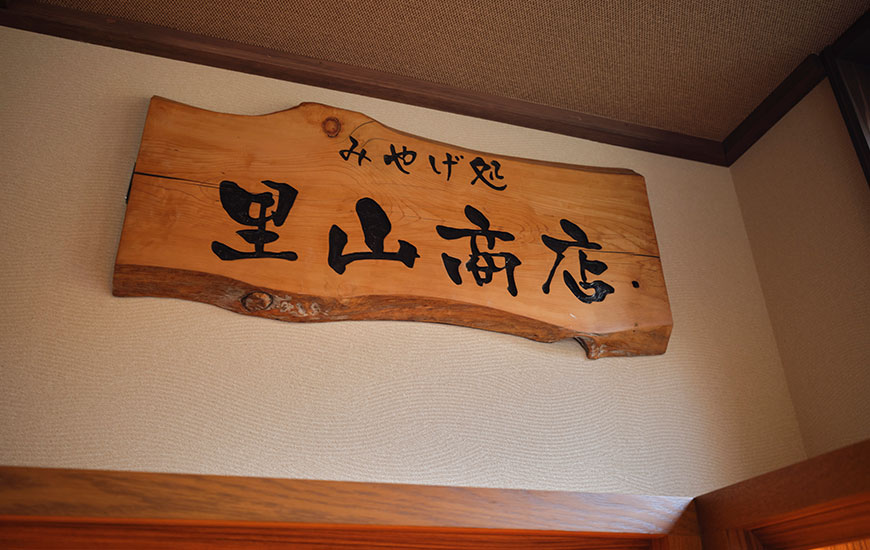 みやげ処
里山商店